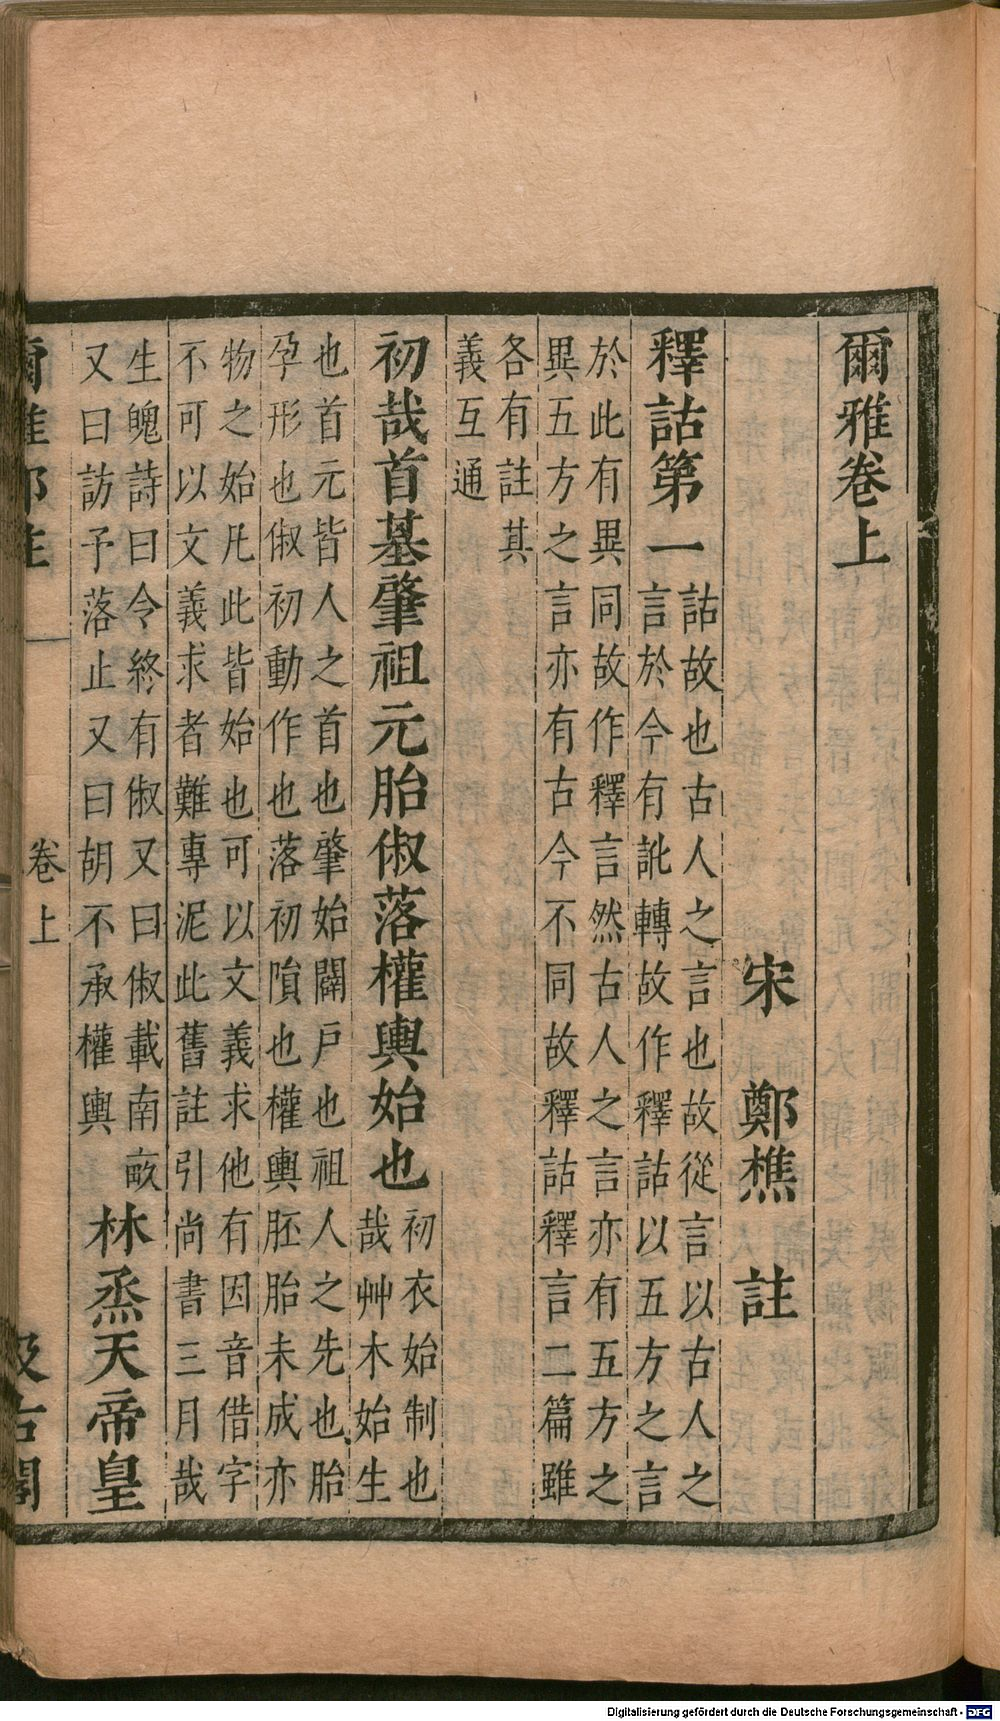 爾雅卷上
宋　鄭樵　註
釋詁第一
詁故也古人之言也故從言以古人之
言於今有訛轉故作釋詁以五方之言
於此有異同故作釋言然古人之言亦有五方之
異五方之言亦有古今不同故釋詁釋言二篇雖
各有註其
義互通
初哉首基肇祖元胎俶落權輿始也
初衣始制也
哉艸木始生
也首元皆人之首也肇始闢戶也祖人之先也胎
孕形也俶初動作也落初隕也權輿胚胎未成亦
物之始凡此皆始也可以文義求他有因音借字
不可以文義求者難專泥此舊註引尚書三月哉
生魄詩曰令終有俶又曰俶載南畝
又曰訪予落止又曰胡不承權輿
林烝天帝皇
爾雅鄭註
卷上
汲古閣
Digitalisierung gefördert durch die Deutsche Forschungsgemeinschaft - DFG